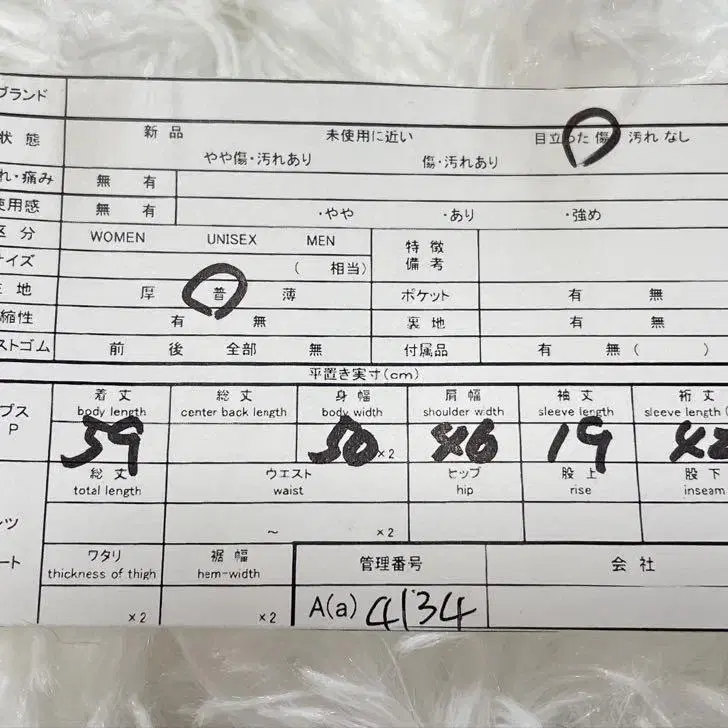 ブランド
状態 新品 未使用に近い 目立った傷 汚れ なし
やや傷・汚れあり 傷・汚れあり
れ・痛み 無 有
使用感 無 有 ・やや ・あり ・強め
区分 WOMEN UNISEX MEN 特徴
イズ ( 相当) 備考
地 厚 普 薄 ポケット 有 無
縮性 有 無 裏地 有 無
ストゴム 前 後 全部 無 付属品 有 無 ( )
平置き実寸(cm)
プス 着丈 総丈 身幅 肩幅 袖丈 裄丈
P body length center back length body width shoulder width sleeve length sleeve length (
59 50 ×2 46 19 42
総丈 ウエスト ヒップ 股上 股下
total length waist hip rise inseam
ツ ～ ×2
ート ワタリ 裾幅 管理番号 会社
thickness of thigh hem-width
×2 ×2 A(a) 4134